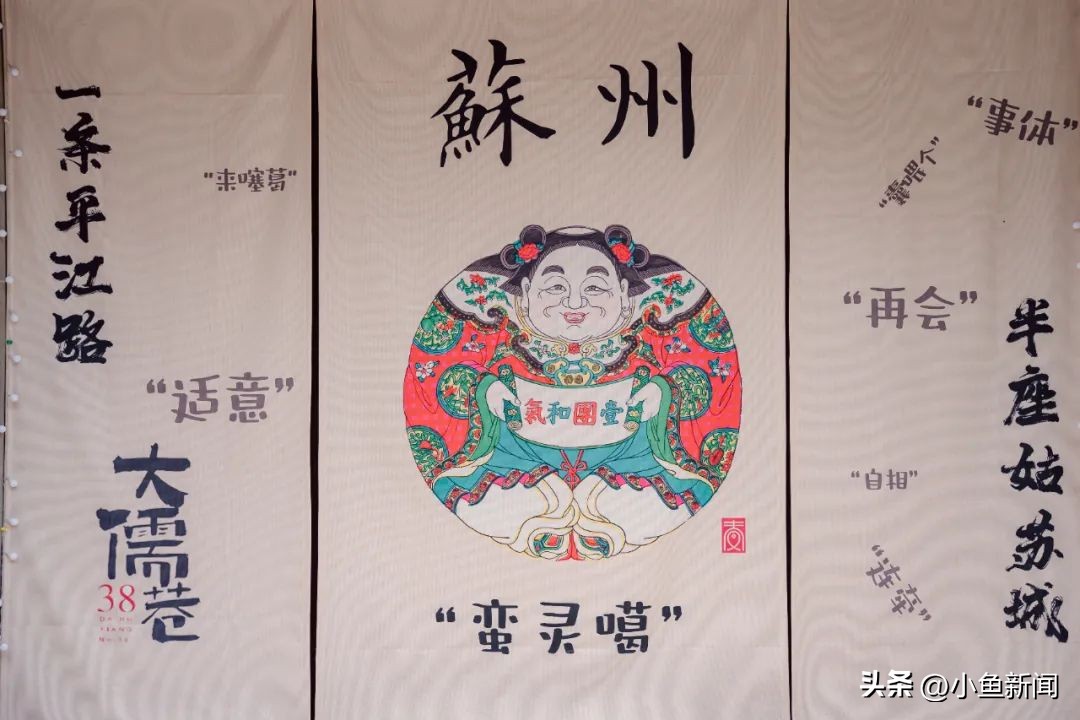 一条平江路
“来噻葛”
“适意”
大儒巷
38
DA RU
XIANG
No.38
蘇州
壹團和氣
“蛮灵噶”
“事体”
“再会”
“自相”
“连牵”
半座姑苏城
头条 @小鱼新闻